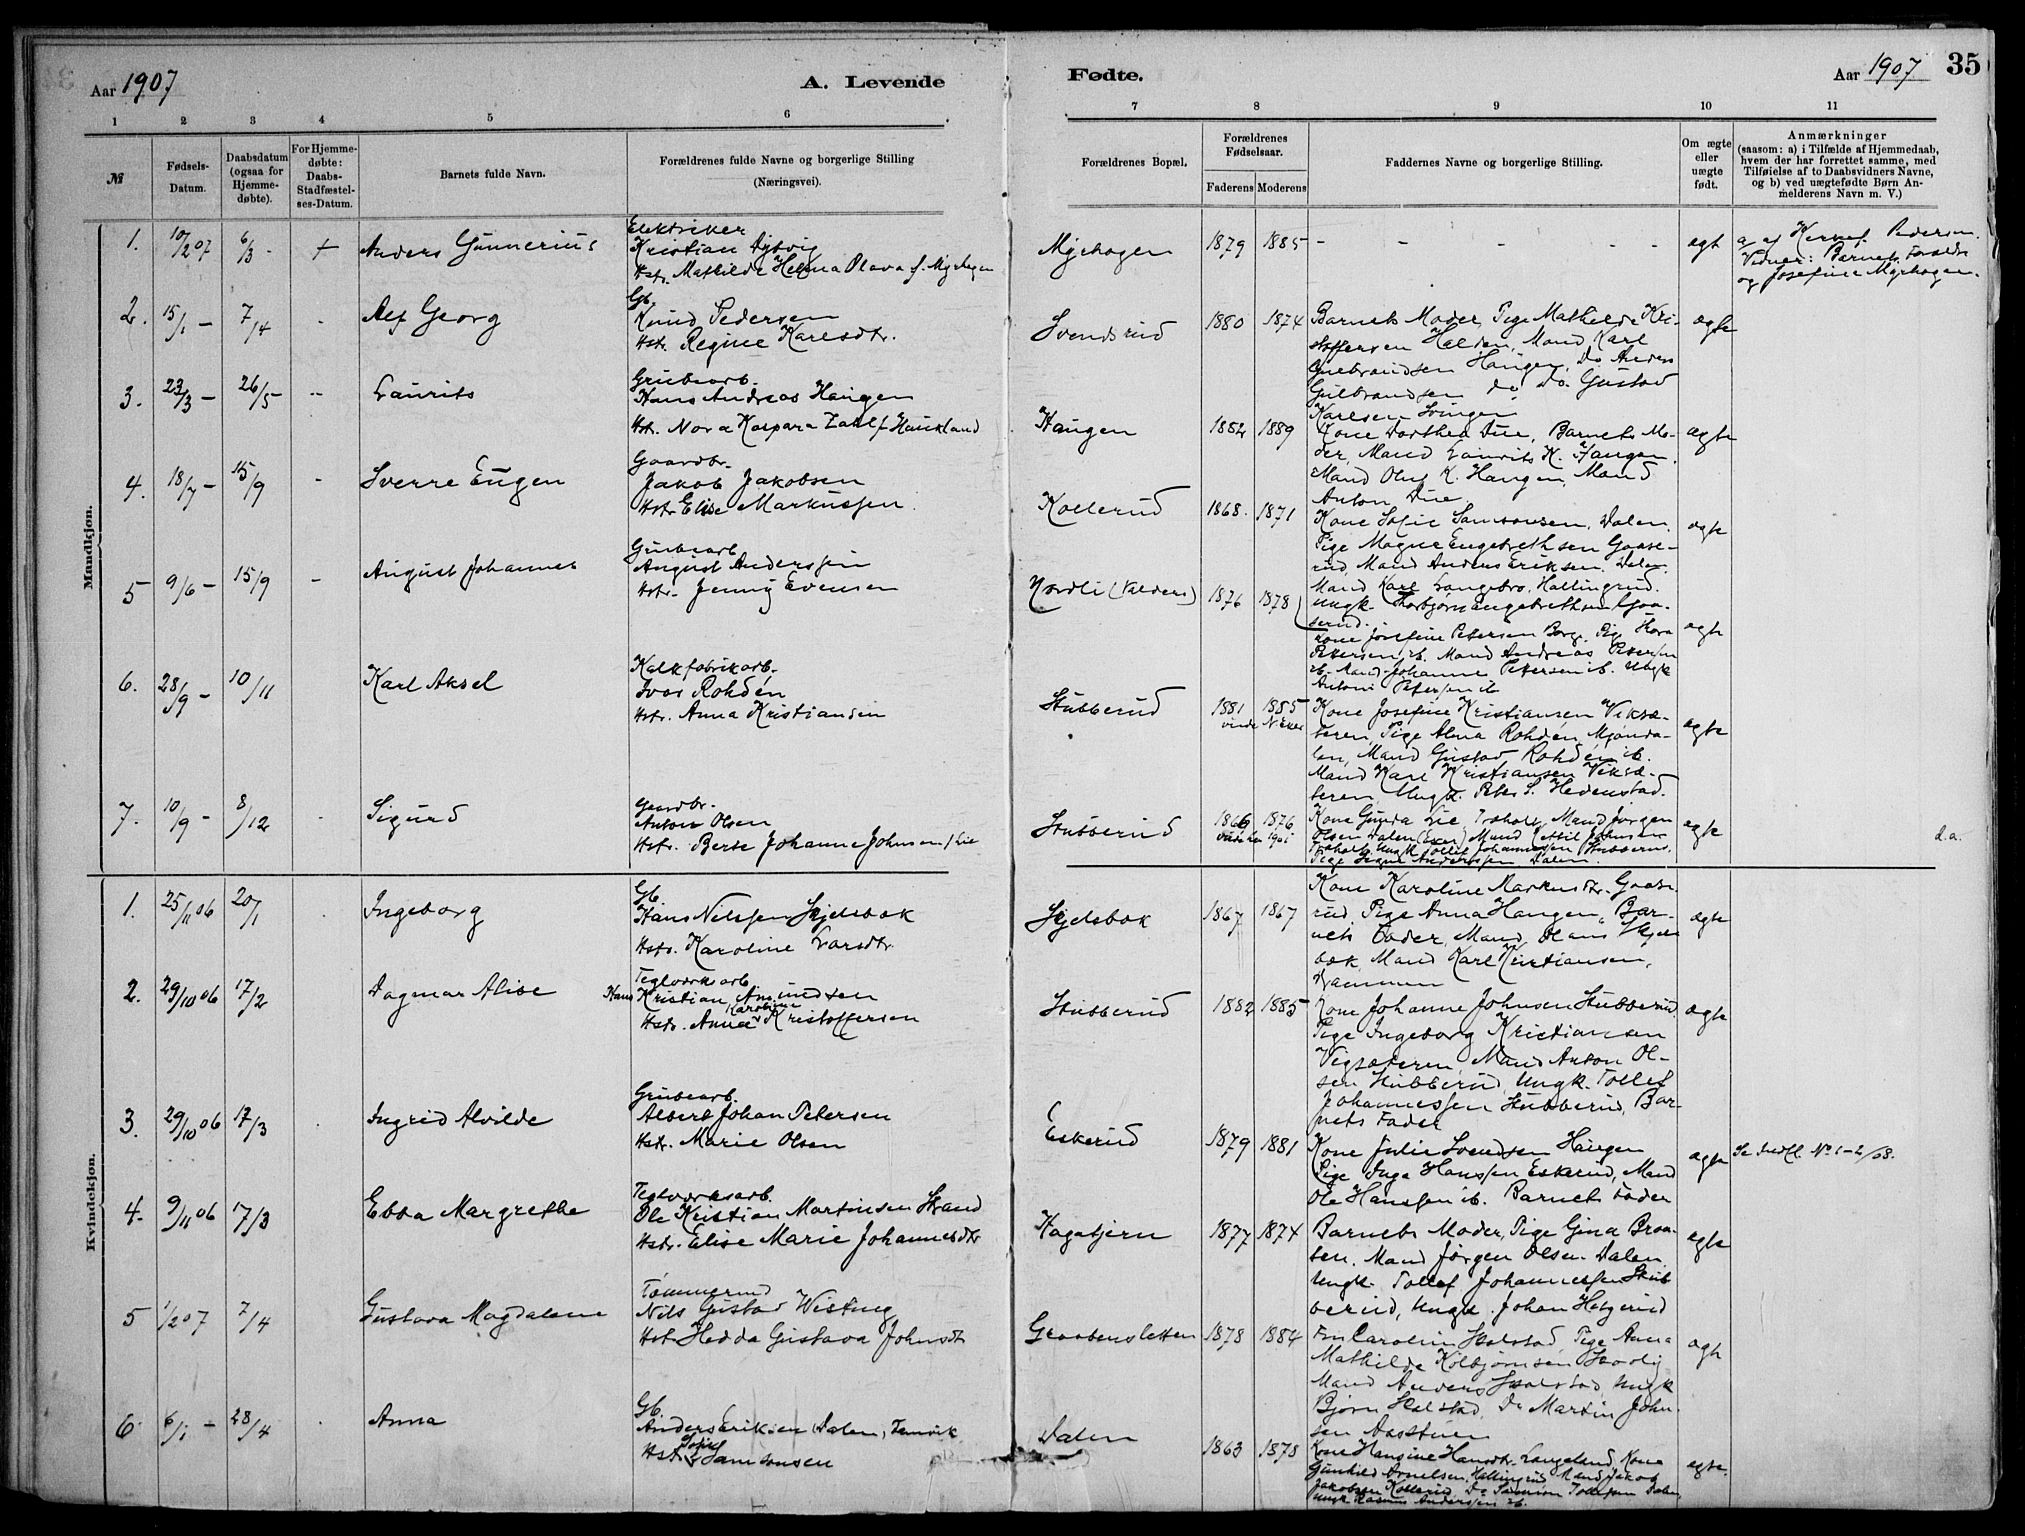 Aar 1907
A. Levende
Fødte.
Aar 1907
35
1 2 3 4 5 6 7 8 9 10 11
№
Fødsels-
Datum.
Daabsdatum
(ogsaa for
Hjemme-
døbte).
For Hjemme-
døbte:
Daabs-
Stadfæstel-
ses-Datum.
Barnets fulde Navn.
Forældrenes fulde Navne og borgerlige Stilling
(Næringsvei).
Forældrenes Bopæl.
Forældrenes
Fødselsaar.
Faderens Moderens
Faddernes Navne og borgerlige Stilling.
Om ægte
eller
uægte
født.
Anmærkninger
(saasom: a) i Tilfælde af Hjemmedaab,
hvem der har forrettet samme, med
Tilføielse af to Daabsvidners Navne,
og b) ved uægtefødte Børn An-
melderens Navn m. V.)
Mandkjøn.
1. 10/2 07 6/3 - + Anders Gunnerius
Elektriker
Kristian
Hstr. Mathilde Helena Olava f. Myrhagen
Myrhagen 1879 1885 - - - - - egt
a. af Pedersen.
Vidner: Barnets Forældre
og Josefine Myrhagen.
2. 15/1 - 7/4 - Alf Georg
Gb.
Knud Pedersen
Hstr. Regine Karlsdtr.
Svendsrud 1880 1874
Barnets Moder, Pige Mathilde Kri-
stoffersen Halden, Mand Karl
Gulbrandsen Haugen, Do Anders
Gulbrandsen do Do. Gustav
Karlsen Svingen
ægte
3. 23/3 - 26/5 - Laurits
Grubearb.
Hans Andreas Haugen
Hstr. Nora Kaspara Zahl f. Haukland
Haugen 1882 1889
Kone Dorthea Due, Barnets Mo-
der, Mand Laurits H. Haugen,
Mand Oluf K. Haugen, Mand
Anton Due.
ægte
4. 18/7 - 15/9 - Sverre Eugen
Gaardbr.
Jakob Jakobsen
Hstr. Elise Markussen.
Kollerud 1868. 1871
Kone Sofie Samsonsen, Dalen,
Pige Magne Engebrethsen Gaase-
rud Mand Anders Eriksen, Dalen,
Mand Karl Langebro, Hallingrud.
Ungk. Thorbjørn Engebrethsen Gaa-
serud.
ægte
5 9/6 - 15/9 - August Johannes
Grubearb.
August Anderssen
Hstr. Jenny Evensen
Nordli (Valders) 1876 1878
Kone Josefine Petersen Borge, Pige Hara
Petersen ib. Mand Andreas Petersen
ib. Mand Johannes Petersen ib. Ungk
Anton Petersen ib
ægte
6. 28/9 - 10/11 Karl Aksel
Kalkfabrikarb.
Ivar Rohdén
Hstr. Anna Kristiansen
Stubberud 1881 1885
Kone Josefine Kristiansen Viksæ-
teren, Pige Alma Rohdén, Mjønda-
len, Mand Gustav Rohdén ib.
Mand Karl Kristiansen Viksæ-
teren, Ungk. Peter S. Hedenstad.
ægte
7. 10/9 - 8/12 - Sigurd
Gaardbr.
Anton Olsen
Hstr. Berte Johanne Johnsen f. Lie
Stubberud 1866 1876
Kone Gunda Lie, Traholt, Mand Jørgen
Olsen Dalen (Eker) Mand Kittil Johnsen
Traholt Ungk Tollef Johannessen Stubberud,
Pige Signe Anderssen Dalen
ægte
d.a.
Kvindekjøn.
1. 25/11 06 20/1 . Ingeborg
Gb.
Hans Nilssen Skjelsbæk
Hstr. Karoline Larsdtr.
Skjelsbæk 1867 1867
Kone Karoline Markusdtr. Gaase-
rud, Pige Anna Haugen, Bar-
nets Fader, Mand Olaus Skjels
bæk, Mand Karl Kristiansen,
Drammen
ægte
2. 29/10 06 17/2 Dagmar Alise
Teglværkarb.
Hans Kristian Amundsen
Hstr. Anna Karoline Kristoffersen
Stubberud 1882 1885
Kone Johanne Johnsen Stubberud,
Pige Ingeborg Kristiansen
Vigsæteren, Mand Anton Ol-
sen Stubberud, Ungk. Tollef
Johannessen Stubberud, Bar-
nets Fader
ægte
3. 29/10 06 17/3 Ingrid Alvilde
Grubearb.
Albert Johan Petersen
Hstr. Marie Olsen
Eskerud 1879 1881
Kone Julie Svendsen Haugen
Pige Inga Hanssen Eskerud, Mand
Ole Hanssen ib. Barnets Fader
ægte
Se Indfl. No 1-2/08.
4. 9/11 06 17/3 Ebba Margrethe
Teglværksarb.
Ole Kristian Martinsen Strand
Hstr. Elise Marie Johannesdtr
Hagatjern 1877 1874
Barnets Moder, Pige Gina Braa-
ten, Mand Jørgen Olsen Dalen
Ungk. Tollef Johannessen Stub
berud, Ungk. Johan Helgerud
ægte
5 1/2 07 7/4 Gustava Magdalene
Tømmermd
Nils Gustav Wisting
Hstr Hedda Gustava Johnsdtr
Graabensletten 1878 1884
Fru Caroline Skalstad, Pige Anna
Mathilde Kolbjørnsen
Mand Anders Skalstad, Ungk
Bjørn Skalstad, Do Martin John-
sen
ægte
6 6/1 - 28/4 . Anna
Gb.
Anders Eriksen Dalen,
Hstr. Sofie Samsonsen
Dalen 1863 1878
Kone Hansine Hansdtr. Langeland, Kone
Gunhild Arnelsen, Hallingrud Mand Jakob
Jakobsen Kollerud, Do Samson Tollefsen Dalen,
Ungk Rasmus Anderssen ib.
ægte.